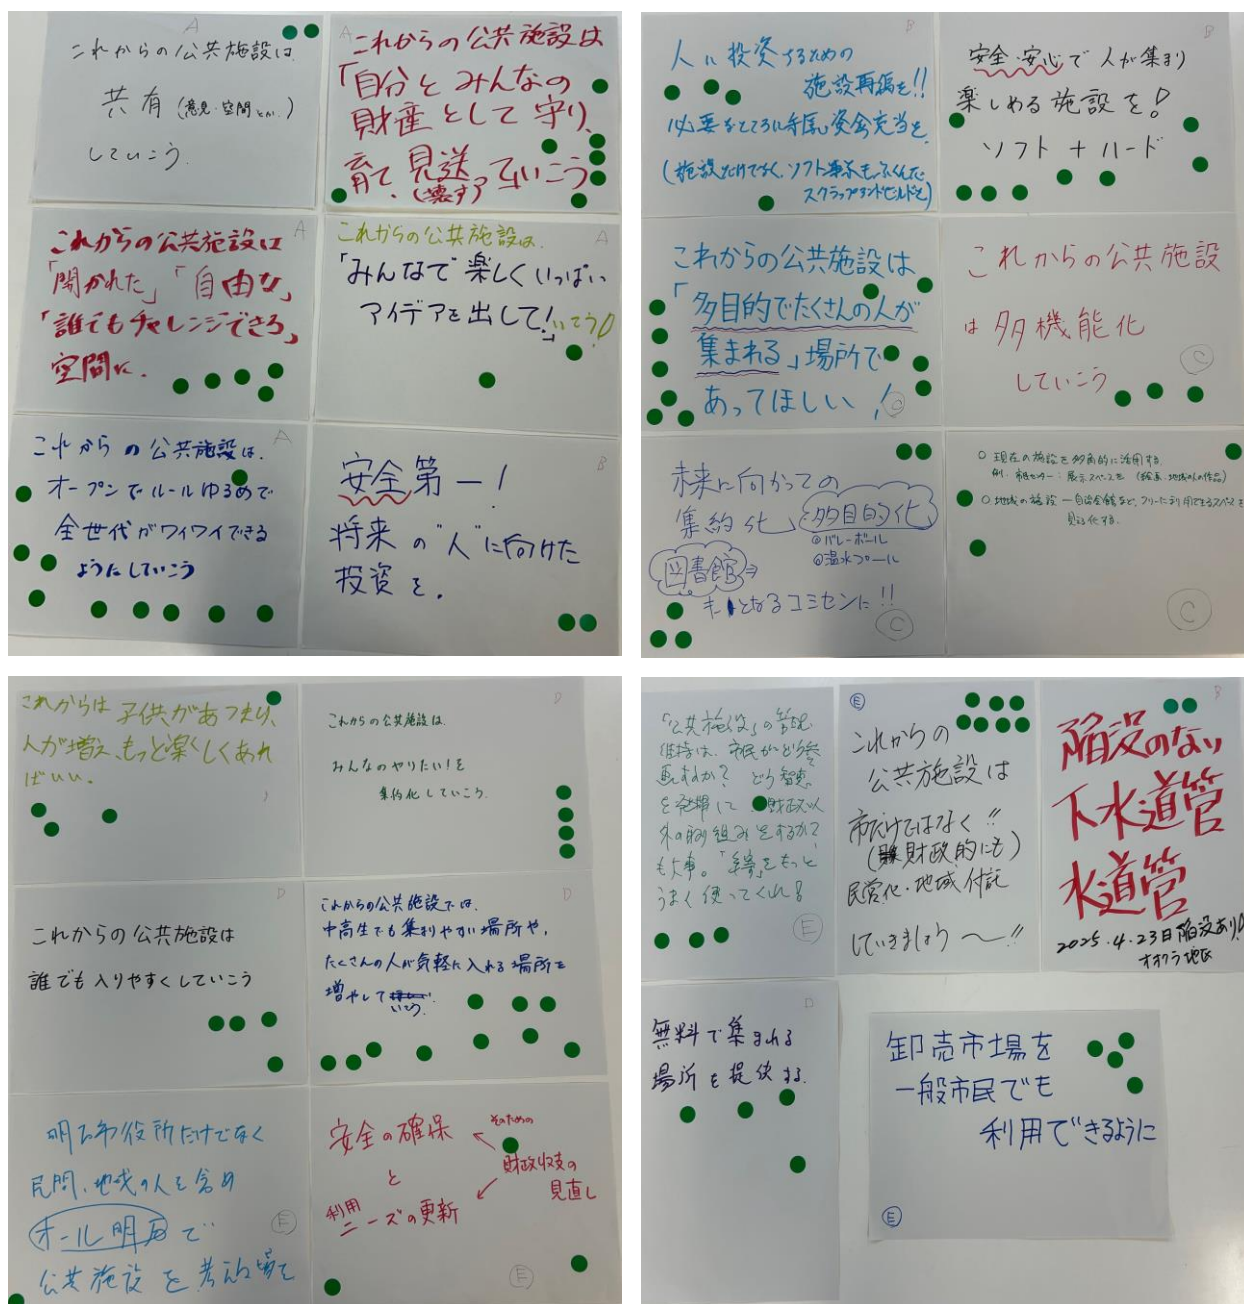 A
これからの公共施設は
共有(意見・空間とか)
していこう.
A
これからの公共施設は
「自分とみんなの
財産として守り、
育て、見送っていこう
(壊す)
A
これからの公共施設は
「開かれた」「自由な」
「誰でもチャレンジできる」
空間に.
A
これからの公共施設は、
「みんなで楽しくいっぱい
アイデアを出して!」いこう!
A
これからの公共施設は、
オープンでルールゆるめで
全世代がワイワイできる
ようにしていこう
B
安全第一!
将来の"人"に向けた
投資を.
B
人に投資するための
施設再編を!!
必要なところに 資金充当を
(施設だけでなく、ソフト事業もふくんだ
スクラップアンドビルドを)
B
安全・安心で人が集まり
楽しめる施設を!
ソフト+ハード
これからの公共施設は
「多目的でたくさんの人が
集まれる」場所で
あってほしい!
C
これからの公共施設
は多機能化
していこう
C
未来に向かっての
集約化、多目的化
◎バレーボール
◎温水プール
図書館⇒
となるコミセンに!!
C
○ 現在の施設を多角的に活用する.
例. 市民センター:展示スペースを (絵画・地域の人の作品)
○ 地域の施設―自治会館など、フリーに利用できるスペースを
見える化する.
C
これからは 子供があつまり、
人が増え、もっと楽しくあれ
ばいい.
D
これからの公共施設は、
みんなのやりたい!を
集約化していこう.
D
これからの公共施設は
誰でも入りやすくしていこう
D
これからの公共施設では、
中高生でも集まりやすい場所や、
たくさんの人が気軽に入れる場所を
増やしていこう.
明石市役所だけでなく
民間、地域の人も含め
オール明石で
公共施設を考える場を
E
安全の確保
と
利用
ニーズの更新
そのための
財政収支の
見直し
E
「公共施設」の管理
維持は、市民がどう参
画するか? どう知恵
を発揮して 財政以
外の取り組みをするかで
も大事。「 」をもっと
うまく使ってくれ!
E
E
これからの
公共施設は
市だけではなく!!
(財政的にも)
民営化・地域付託
していきましょう〜!!
B
陥没のない
下水道管
水道管
2025.4.23日陥没あり!
オオクラ地区
D
無料で集まれる
場所を提供する.
卸売市場を
一般市民でも
利用できるように
E